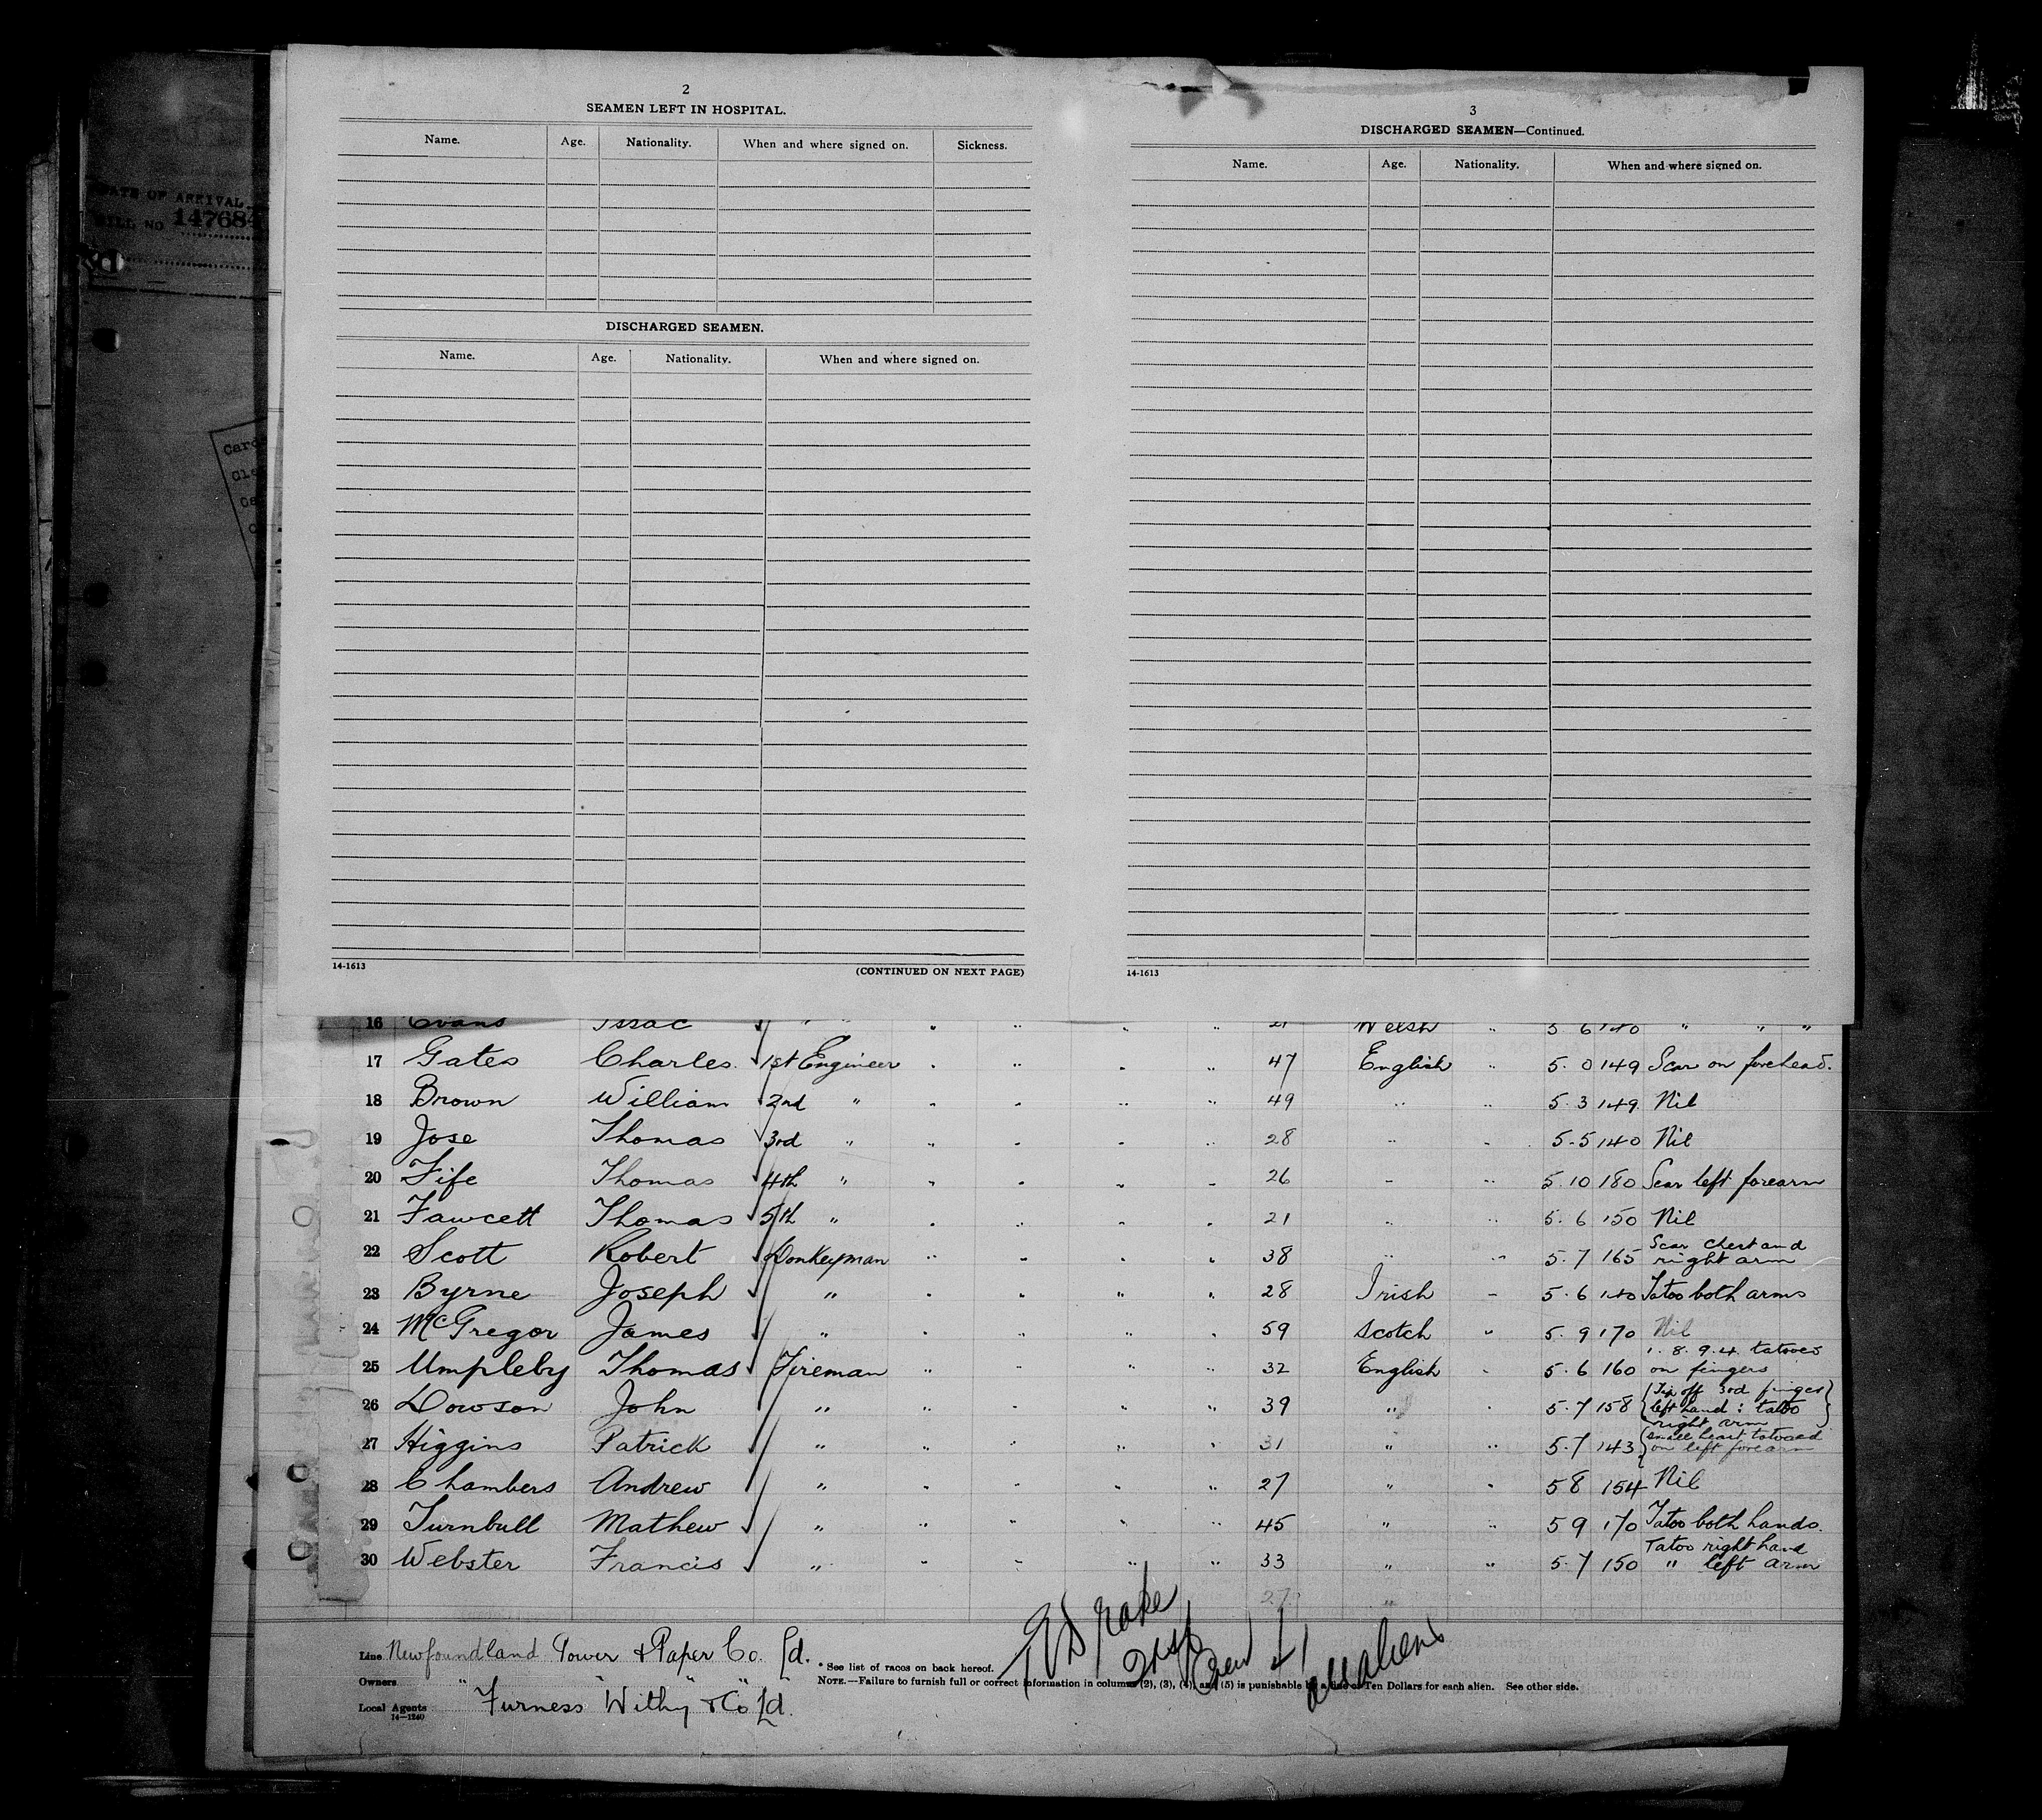 DATE OF ARRIVAL
BILL NO 147684
2
SEAMEN LEFT IN HOSPITAL.
Name. Age. Nationality. When and where signed on. Sickness.
DISCHARGED SEAMEN.
Name. Age. Nationality. When and where signed on.
14-1613 (CONTINUED ON NEXT PAGE)
3
DISCHARGED SEAMEN—Continued.
Name. Age. Nationality. When and where signed on.
14-1613
16 Evans Issac 21 Welsh " 5 6 140 " " "
17 Gates Charles 1st Engineer " " " " 47 English " 5.0 149 Scar on forehead.
18 Brown William 2nd " " " " " 49 " " 5.3 149 Nil
19 Jose Thomas 3rd " " " " " 28 " " 5.5 140 Nil
20 Fife Thomas 4th " " " " " 26 " " 5.10 180 Scar left forearm
21 Fawcett Thomas 5th " " " " " 21 " " 5.6 150 Nil
22 Scott Robert Donkeyman " " " " 38 " " 5.7 165 Scar Chest and right arm
23 Byrne Joseph " " " " " 28 Irish " 5.6 140 Tatoo both arms
24 McGregor James " " " " " 59 Scotch " 5.9 170 Nil
25 Umpleby Thomas Fireman " " " " 32 English " 5.6 160 1.8.9.4. tatooed on fingers
26 Dowson John " " " " " 39 " " 5.7 158 Tip off 3rd finger left hand : tatoo right arm
27 Higgins Patrick " " " " " 31 " " 5.7 143 small heart tatooed on left forearm
28 Chambers Andrew " " " " " 27 " " 5 8 154 Nil
29 Turnbull Mathew " " " " " 45 " " 5 9 170 Tatoo both hands.
30 Webster Francis " " " " " 33 " " 5.7 150 Tatoo right hand " left arm
27 "
Line Newfoundland Power & Paper Co. Ld.
* See list of races on back hereof.
Owners " " " "
NOTE.—Failure to furnish full or correct information in columns (2), (3), (4), and (5) is punishable by a fine of Ten Dollars for each alien. See other side.
Local Agents Furness Withy & Co Ld.
14—1240
Drake
Insp
Crew
all aliens